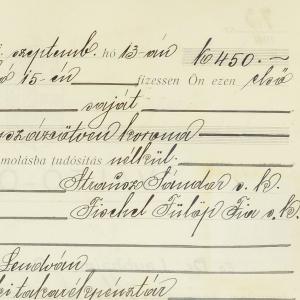 septemb. hó 13-án K 450.-
15-én fizessen Ön ezen első
saját
százötven korona
molásba tudósítás nélkül.
Strausz Sándor s. k.
Fischel Fülöp Fia s. k.
Lendván
takarékpénztár